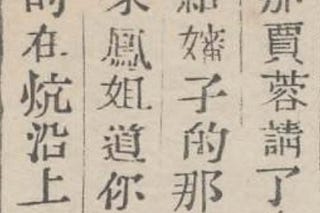 賈蓉請了
嬸子的那
鳳姐道你
的在炕沿上